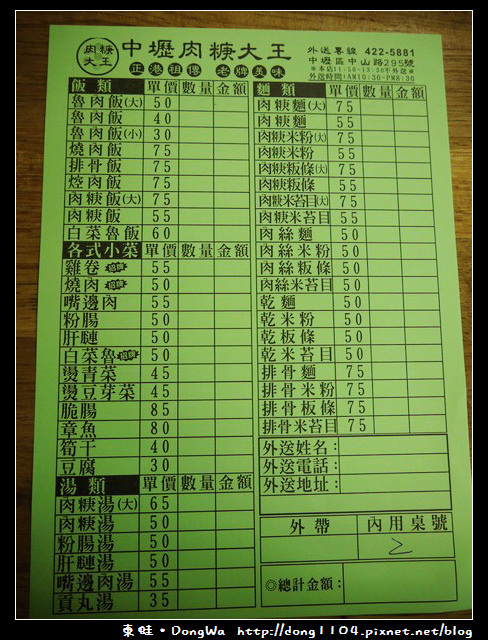 肉焿大王
中壢肉焿大王
正港祖傳 老牌美味
外送專線 422-5881
中壢區中山路295號
※本店11:50-13:30不外送※
外送時間:AM10:30-PM8:30
飯類 單價 數量 金額
魯肉飯(大) 50
魯肉飯 40
魯肉飯(小) 30
燒肉飯 75
排骨飯 75
焢肉飯 75
肉焿飯(大) 75
肉焿飯 55
白菜魯飯 60
各式小菜 單價 數量 金額
雞卷 招牌 55
燒肉 招牌 50
嘴邊肉 55
粉腸 50
肝連 50
白菜魯 招牌 50
燙青菜 45
燙豆芽菜 45
脆腸 85
章魚 80
筍干 40
豆腐 30
湯類 單價 數量 金額
肉焿湯(大) 65
肉焿湯 50
粉腸湯 50
肝連湯 50
嘴邊肉湯 55
貢丸湯 35
麵類 單價 數量 金額
肉焿麵(大) 75
肉焿麵 55
肉焿米粉(大) 75
肉焿米粉 55
肉焿粄條(大) 75
肉焿粄條 55
肉焿米苔目(大) 75
肉焿米苔目 55
肉絲麵 50
肉絲米粉 50
肉絲粄條 50
肉絲米苔目 50
乾麵 50
乾米粉 50
乾板條 50
乾米苔目 50
排骨麵 75
排骨米粉 75
排骨板條 75
排骨米苔目 75
外送姓名：
外送電話：
外送地址：
外帶 內用桌號
2
◎總計金額：
東蛙・DongWa http://dong1104.pixnet.net/blog